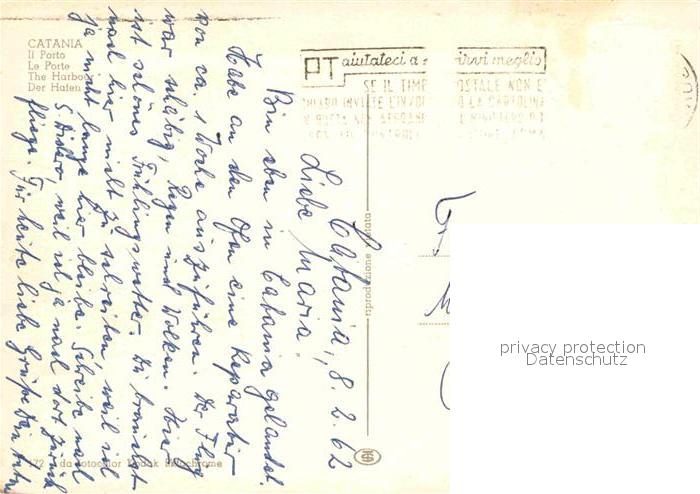 CATANIA
Il Porto
Le Porte
The Harbour
Der Hafen
PT aiutateci a irvi meglio
SE IL TIMB OSTALE NON È
riproduzione vietata
172 da fotocolor Kodak Ektachrome
Catania, 8. 2. 62
Liebe Maria.
Bin eben in Catania gelandet.
Habe an den Ofen eine Reparatur
von ca. 1 Woche auszuführen. Der Flug
war schäbig, Regen und Wolken. Hier
ist schönes Frühlingswetter. Du brauchst
nach hier nicht zu schreiben, weil ich
ja nicht lange hier bleibe. Schreibe nach
S. weil ich ja nach dort zurück
fliege. Für heute liebe Grüße Dein
privacy protection
Datenschutz